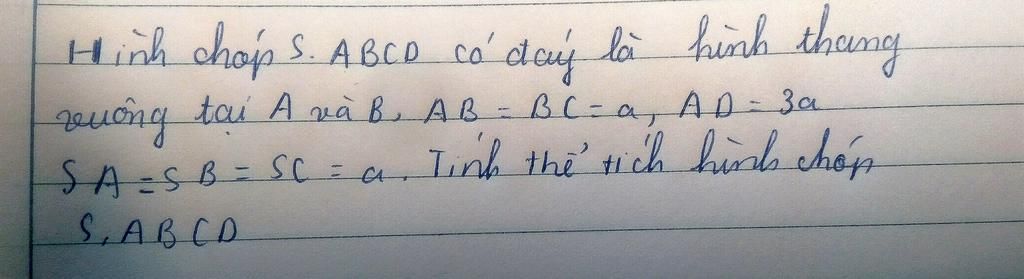 Hình chóp S. ABCD có đáy là hình thang
vuông tại A và B, AB = BC = a, AD = 3a
SA = SB = SC = a. Tính thể tích hình chóp
S, ABCD